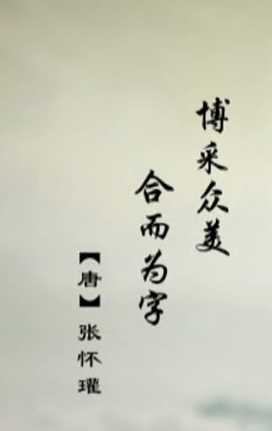 博采众美
合而为字
【唐】张怀瓘